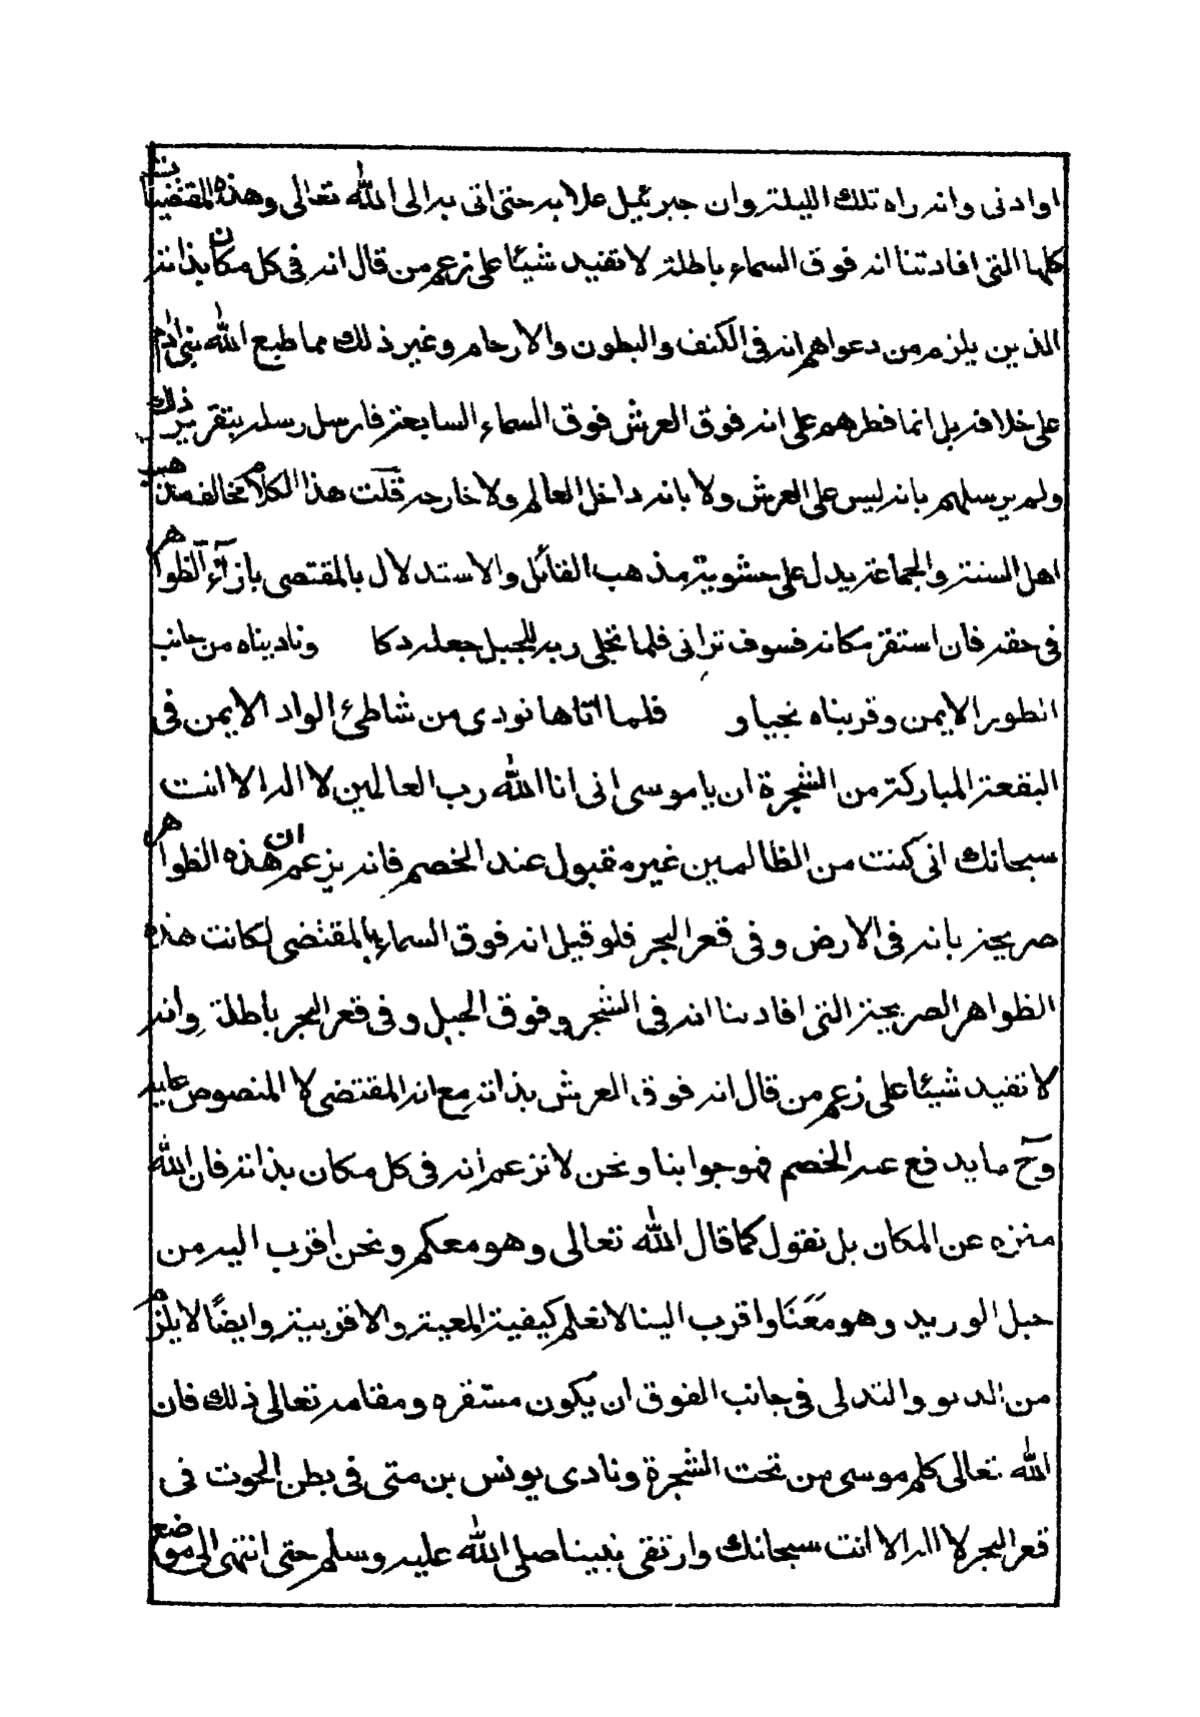 او ادنى وانه راه تلك الليلة وان جبرئيل علا به حتى اتى به الى الله تعالى وهذه المقتضيات
كلها التى افادتنا انه فوق السماء باطلة لا تفيد شيئا على زعم من قال انه فى كل مكان بذاته
الذين يلزم من دعواهم انه فى الكنف والبطون والارحام وغير ذلك مما طبع الله بنى ادم
على خلافه بل انما فطرهم على انه فوق العرش فوق السماء السابعة فارسل رسله بتقرير ذلك
ولم يرسلهم بانه ليس على العرش ولا بانه داخل العالم ولا خارجه قلت هذا الكلام مخالف مذهب
اهل السنة والجماعة يدل على حشوية مذهب القائل والاستدلال بالمقتضى بازآء الظواهر
فى حقه فان استقر مكانه فسوف ترانى فلما تجلى ربه للجبل جعله دكا وناديناه من جانب
الطور الايمن وقربناه نجيا و فلما اتاها نودى من شاطئ الواد الايمن فى
البقعة المباركة من الشجرة ان يا موسى انى انا الله رب العالمين لا اله الا انت
سبحانك انى كنت من الظالمين غير مقبول عند الخصم فانه يزعم ان هذه الظواهر
صريحة بانه فى الارض وفى قعر البحر فلو قيل انه فوق السماء بالمقتضى لكانت هذه
الظواهر الصريحة التى افادتنا انه فى الشجر وفوق الجبل وفى قعر البحر باطلة وانه
لا تفيد شيئا على زعم من قال انه فوق العرش بذاته مع انه المقتضى لا المنصوص عليه
وح ما يدفع عنه الخصم فهو جوابنا ونحن لا نزعم انه فى كل مكان بذاته فان الله
منزه عن المكان بل نقول كما قال الله تعالى وهو معكم ونحن اقرب اليه من
حبل الوريد وهو مَعَنَا واقرب الينا لا نعلم كيفية المعية والاقربية وايضًا لا يلزم
من الدنو والتدلى فى جانب الفوق ان يكون مستقره ومقامه تعالى ذلك فان
الله تعالى كلم موسى من تحت الشجرة ونادى يونس بن متى فى بطن الحوت فى
قعر البحر لا اله الا انت سبحانك وارتقى نبينا صلى الله عليه وسلم حتى انتهى الى موضع